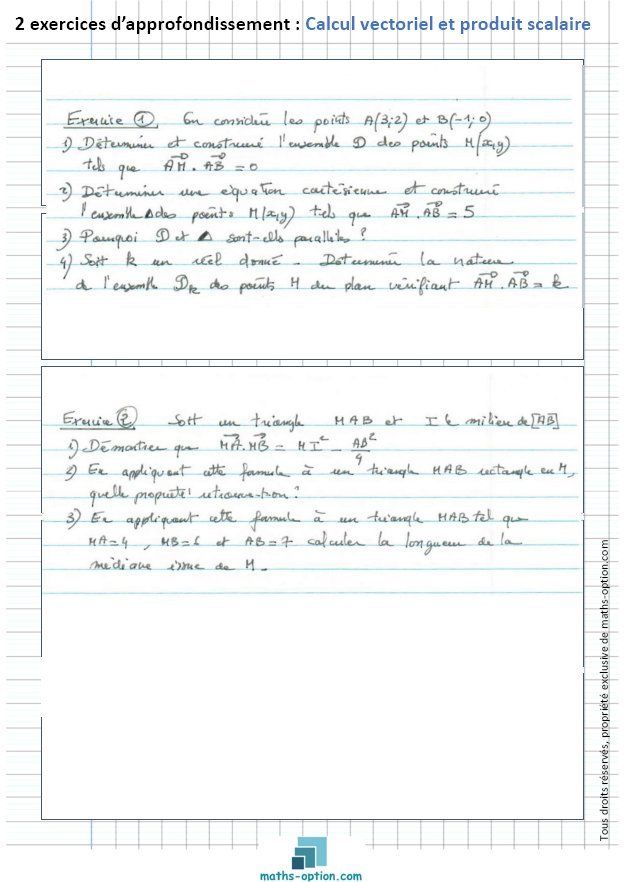 2 exercices d'approfondissement : Calcul vectoriel et produit scalaire
Exercice ① On considère les points A(3;2) et B(-1;0)
1) Déterminer et construire l'ensemble D des points M(x,y)
tels que AM⃗ . AB⃗ = 0
2) Déterminer une équation cartésienne et construire
l'ensemble Δ des points M(x,y) tels que AM⃗ . AB⃗ = 5
3) Pourquoi D et Δ sont-elles parallèles ?
4) Soit k un réel donné. Déterminer la nature
de l'ensemble Dk des points M du plan vérifiant AM⃗ . AB⃗ = k
Exercice ② Soit un triangle MAB et I le milieu de [AB]
1) Démontrer que MA⃗ . MB⃗ = MI² - AB²/4
2) En appliquant cette formule à un triangle MAB rectangle en M,
quelle propriété retrouve-t-on ?
3) En appliquant cette formule à un triangle MAB tel que
MA=4, MB=6 et AB=7 calculer la longueur de la
médiane issue de M.
Tous droits réservés, propriété exclusive de maths-option.com
maths-option.com